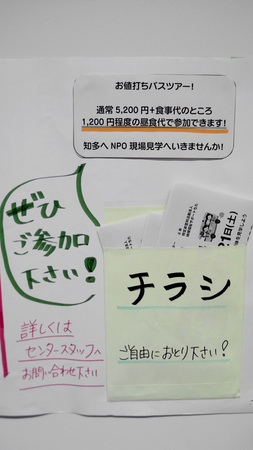 お値打ちバスツアー!
通常 5,200 円+食事代のところ
1,200 円程度の昼食代で参加できます!
知多へ NPO 現場見学へいきませんか!
ぜひ
ご参加
下さい!
チラシ
ご自由におとり下さい!
詳しくは
センタースタッフへ
お問い合わせ下さい